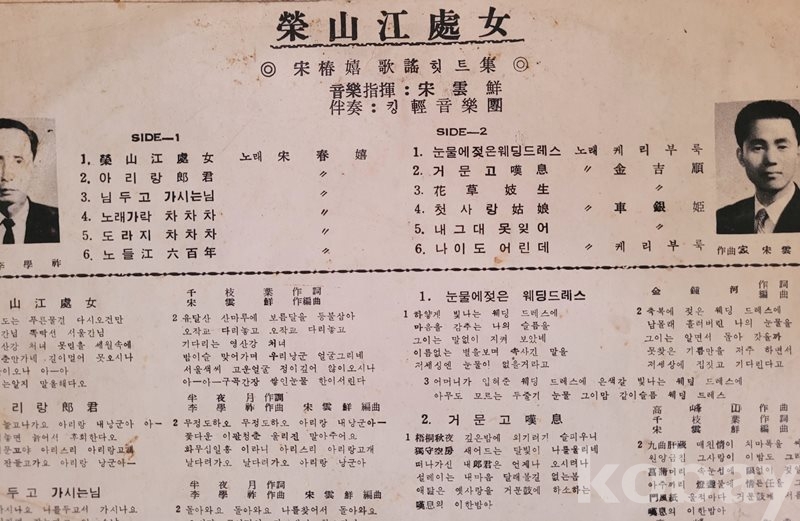 榮山江處女
◎ 宋椿嬉 歌謠힛트集 ◎
音樂指揮：宋雲鮮
伴奏：킹輕音樂團
SIDE—1
1. 榮山江處女 노래 宋春嬉
2. 아리랑郎君 〃
3. 님두고 가시는님 〃
4. 노래가락 차차차 〃
5. 도라지 차차차 〃
6. 노들江六百年 〃
SIDE—2
1. 눈물에젖은웨딩드레스 노래 케리부룩
2. 거문고嘆息 〃 金吉順
3. 花草妓生 〃
4. 첫사랑姑娘 〃 車銀姬
5. 내그대 못잊어 〃
6. 나이도 어린데 〃 케리부룩
李學祚
作曲家 宋雲
山江處女
千枝葉 作詞
宋雲鮮 作編曲
도는 푸른물건 다시오건만
간님 쪽딱선 서울간님
산강 처녀 못믿을 세월속에
춘만가네 길이멀어 못오시나
이오나 아—아
는살지 말올해다오
2 유달산 산마루에 보름달을 등불삼아
오작교 다리놓고 오작교 다리놓고
기다리는 영산강 처녀
밤이슬 맞어가며 우리낭군 얼굴그리네
서울색씨 고운얼굴 정이깊어 않이오시나
아—아—구곡간장 쌓인눈물 한이서린다
리랑郎君
半夜月 作詞
李學祚 作曲 宋雲鮮 編曲
고나가요 아리랑 내낭군아 아—
놀면 늙어서 후회한다오
2 무정도하오 무정도하오 아리랑 내낭군아—
꽃다운 이팔청춘 울리진 말아주어요
화무십일홍 이라니 아리스리 아리랑고개
날다려가오 날다려가오 아리랑 낭군아
두고 가시는님
半夜月 作詞
李學祚 作曲 宋雲鮮 編曲
시나요 나를두고서 가시나요
2 돌아와요 돌아와요 나를찾어서 돌아와요
1. 눈물에젖은 웨딩드레스
金鐘河 作詞
編曲
1 하얗게 빛나는 웨딩 드레스에
마음을 감추는 나의 슬픔을
그이는 말없이 지켜 보았네
이름없는 별을보며 속사긴 말을
저세상엔 눈물이 없을거라고
2 축복에 젖은 웨딩 드레스에
남몰래 흘러버린 나의 눈물을
그이는 알면서 돌아 갔을까
못찾은 기쁨만을 저주 하면서
저세상에 집짓고 기다린다고
3 어머니가 입혀준 웨딩 드레스에 은색갈 빛나는 웨딩 드레스에
아무도 모르는 두줄기 눈물 그이맘 갈이슬픔 웨딩 드레스
2. 거문고嘆息
高峰山 作曲
千枝葉 作詞
宋雲鮮 編曲
1 梧桐秋夜 깊은밤에 외기러기 슬피우니
獨守空房 새어드는 달빛이 나를울리네
떠나가신 내郎君은 언제나 오시려나
섬레이는 내마음 달래볼길 없는봄
애닯은 옛사랑을 거문鼓에 하소하는
嘆息의 이한밤아
2 九曲肝臟 애처情이 치마폭을
門風紙
嘆息의 이한밤아